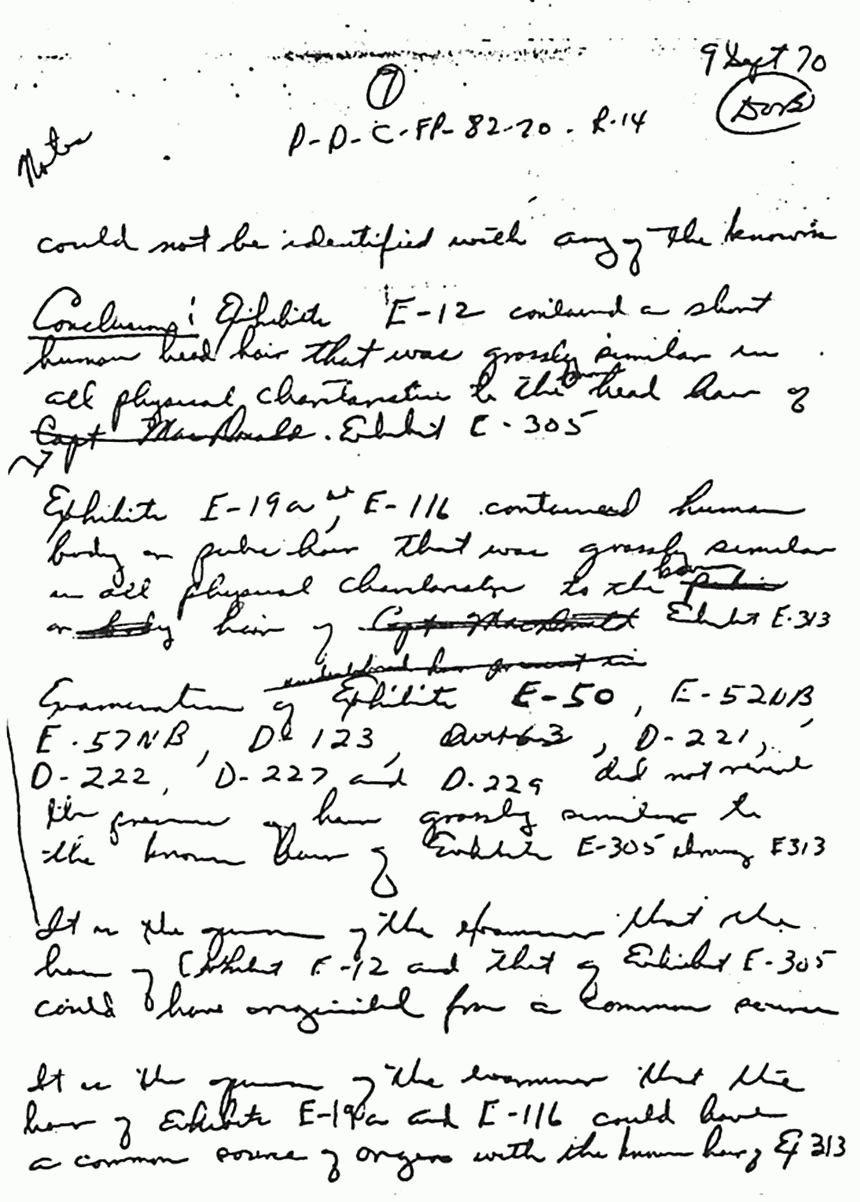 9 Sept 70
7
P-D-C-FP-82-70-R-14
Notes
could not be identified with any of the knowns
Conclusions: Exhibits E-12 contained a short
human head hair that was grossly similar in
all physical to the head hair of
Capt MacDonald. Exhibit E-305
Exhibits E-19a, E-116 contained human
body or pubic hair that was grossly similar
in all physical to the pubic
or body hair of Capt MacDonald Exhibit E-313
hair present in
Examination of Exhibits E-50, E-52NB
E-57NB, D-123, D-221,
D-222, D-227 and D-229 did not reveal
the presence of hair grossly similar to
the known hair of Exhibits E-305 E313
It is the opinion of the examiner that the
hair of Exhibit E-12 and that of Exhibit E-305
could have originated from a common source
It is the opinion of the examiner that the
hair of Exhibits E-19a and E-116 could have
a common source of origin with the known hair of Ex 313